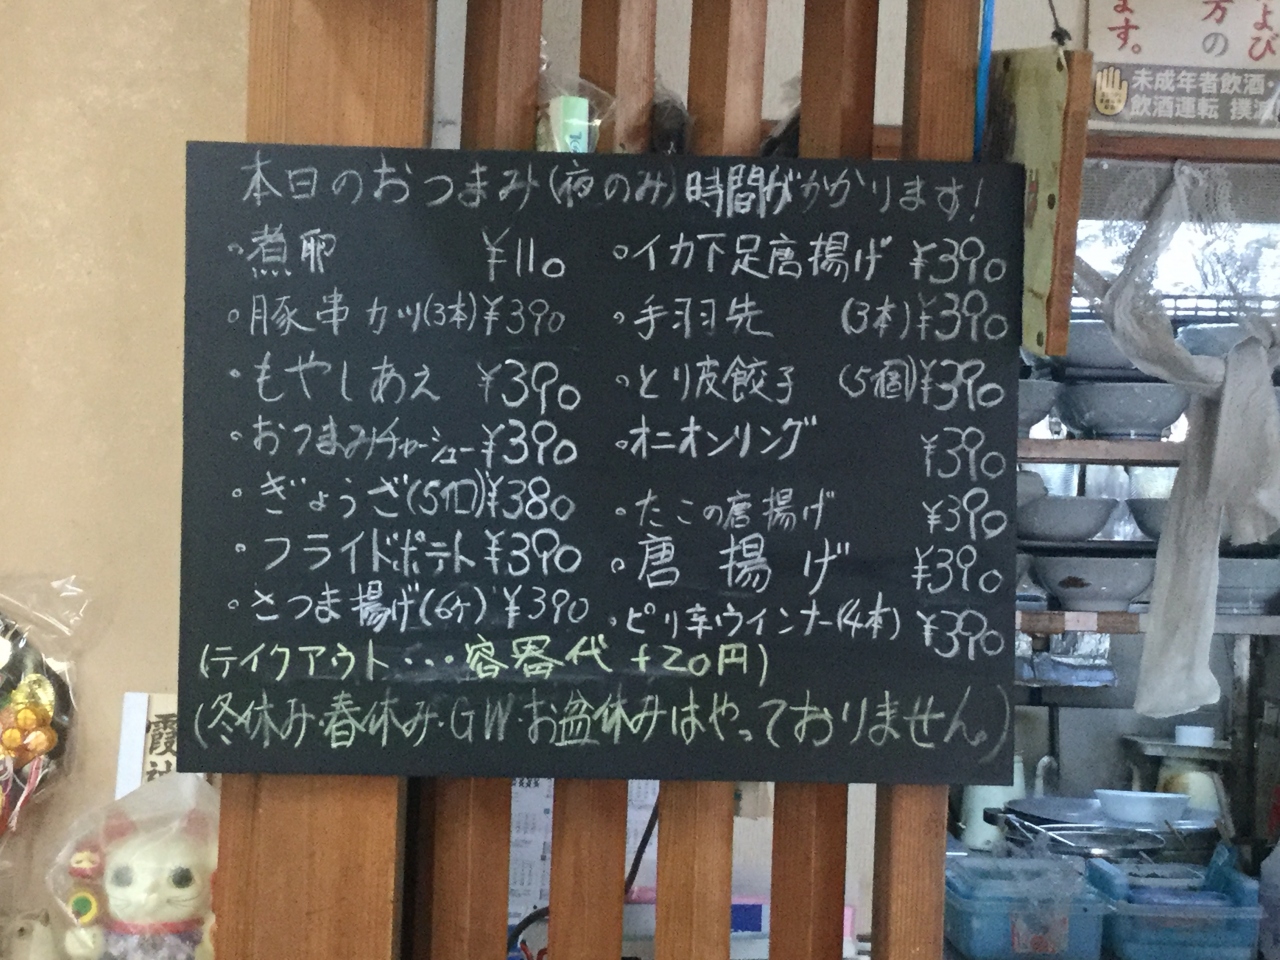 本日のおつまみ(夜のみ)時間がかかります!
・煮卵 ¥110
・豚串カツ(3本)¥390
・もやしあえ ¥390
・おつまみチャーシュー¥390
・ぎょうざ(5個)¥380
・フライドポテト¥390
・さつま揚げ(6ケ)¥390
・イカ下足唐揚げ ¥390
・手羽先 (3本)¥390
・とり皮餃子 (5個)¥390
・オニオンリング ¥390
・たこの唐揚げ ¥390
・唐揚げ ¥390
・ピリ辛ウインナー(4本) ¥390
(テイクアウト・・・容器代 +20円)
(冬休み・春休み・GW・お盆休みはやっておりません。)
よび
方の
ます。
未成年者飲酒・
飲酒運転 撲滅
霞